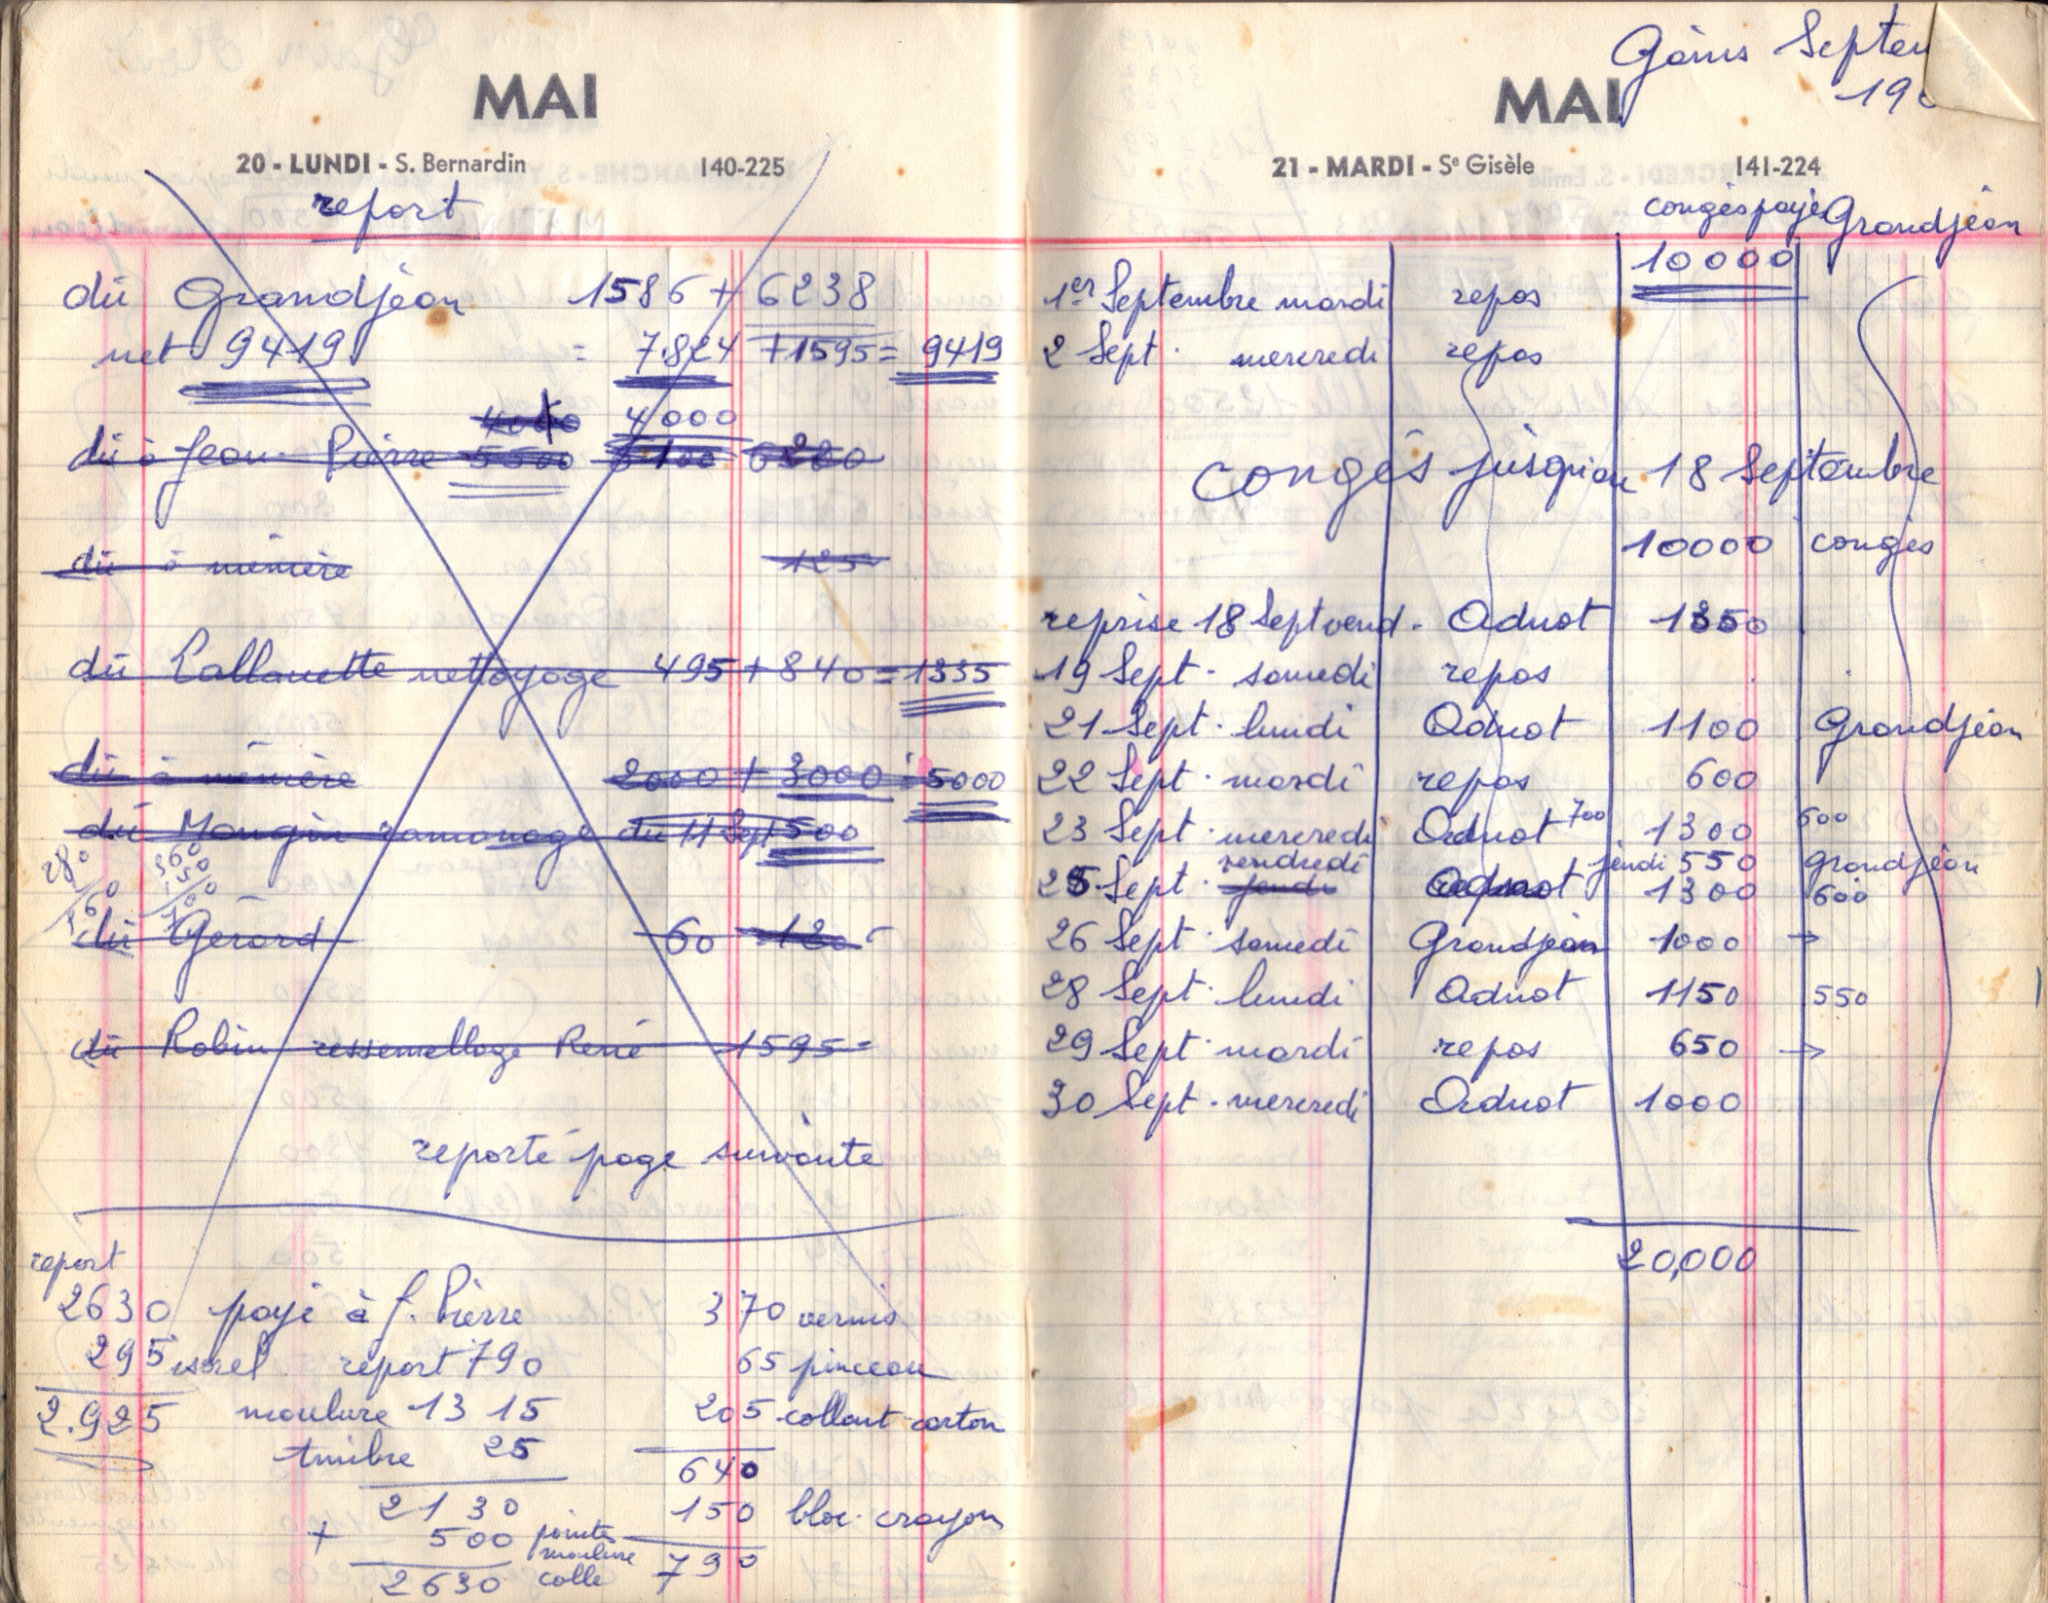 MAI
20 - LUNDI - S. Bernardin 140-225
report
dû Grandjéan 1586 + 6238
net 9419 = 7.824 + 1595 = 9419
4000 4000
dû à Jean Pierre 5500
dû à mémère 125
dû Lallouette nettoyage 495 + 840 = 1335
dû à mémère 2000 + 3000 = 5000
dû Mougin ramonage du 11 Sept 500
dû Gérard 60 120
dû Robin ressemellage René 1595 =
reporté page suivante
report
2630 payé à J. Pierre 370 vernis
295 isorel report 790 65 pinceau
2.925 moulure 1315 205 collant carton
timbre 25 640
2130 150 bloc crayon
+ 500 pointes moulure colle 790
2630
Gains Septem
19
MAI
21 - MARDI - Sᵉ Gisèle 141-224
congés payés Grandjéan
10000
1er Septembre mardi repos
2 Sept. mercredi repos
congés jusqu'au 18 Septembre
10000 congés
reprise 18 Sept vend. Adnot 1350
19 Sept. samedi repos
21 Sept. lundi Adnot 1100 Grandjéan
22 Sept. mardi repos 600
23 Sept. mercredi Adnot 700 1300 600
vendredi jeudi 550 grandjéan
25 Sept. jeudi Adnot 1300 600
26 Sept. samedi Grandjéan 1000 →
28 Sept. lundi Adnot 1150 550
29 Sept. mardi repos 650 →
30 Sept. mercredi Adnot 1000
20,000